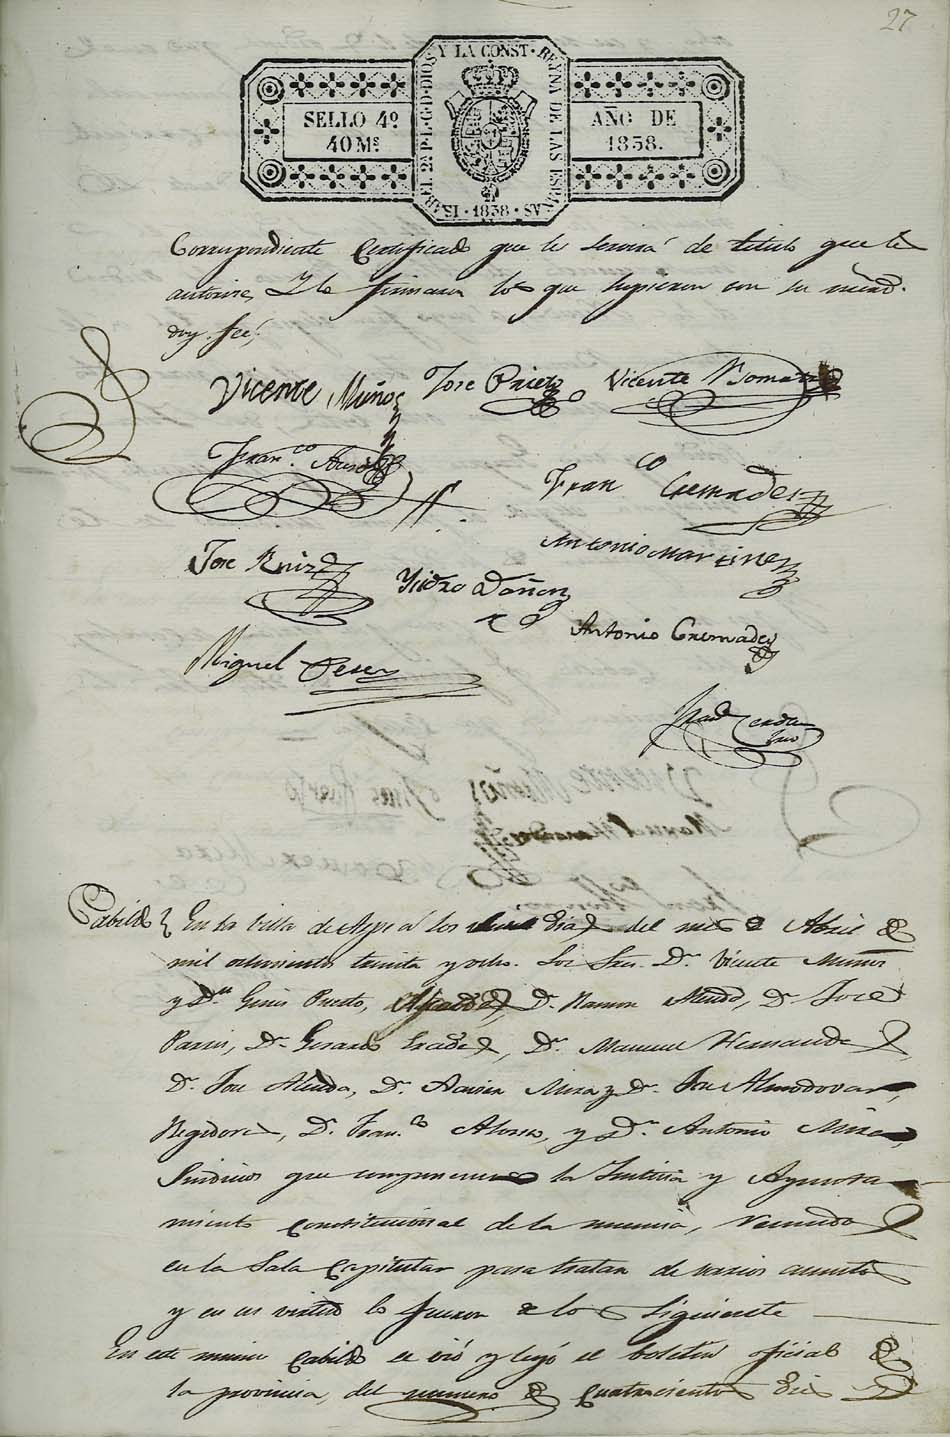 27
ISABEL 2ª P. L. G. D. DIOS Y LA CONST. REYNA DE LAS ESPAÑAS · 1838 ·
SELLO 4º
40 Ms
AÑO DE
1838.
Correspondiente Certificado que les servirá de titulo que le
autorise, Y lo firmaron los que supieron con su mrd.
doy feé,
Vicente Muñoz
Jose Prieto
Vicente
Fran.co
Fran co Cremades
Jose Ruiz
Antonio Martinez
Antonio Cremades
Miguel Perez
Cabildo En la villa de Aspe á los dias del mes de Abril de
mil ochocientos treinta y ocho. Los Sres. Dn. Vicente Muñoz
y Dn. Ginés Puerto, Alcaldes, Dn. Ramon, Dn. Jose
Pavia, Dn. Gerardo, Dn. Manuel Hernandez
Dn. Jose, Dn. Xavier Mira y Dn. Jose Almodovar,
Regidores, Dn. Fran.co Alonso, y Dn. Antonio Mira,
Sindicos que componen la Justicia y Ayunta
miento constitucional de la misma, reunidos
en la Sala Capitular para tratar de varios asuntos
y en su virtud lo fueron de los siguiente
En este mismo Cabildo se vió y leyó el boletin oficial de
la provincia, del numero de cuatrocientos diez